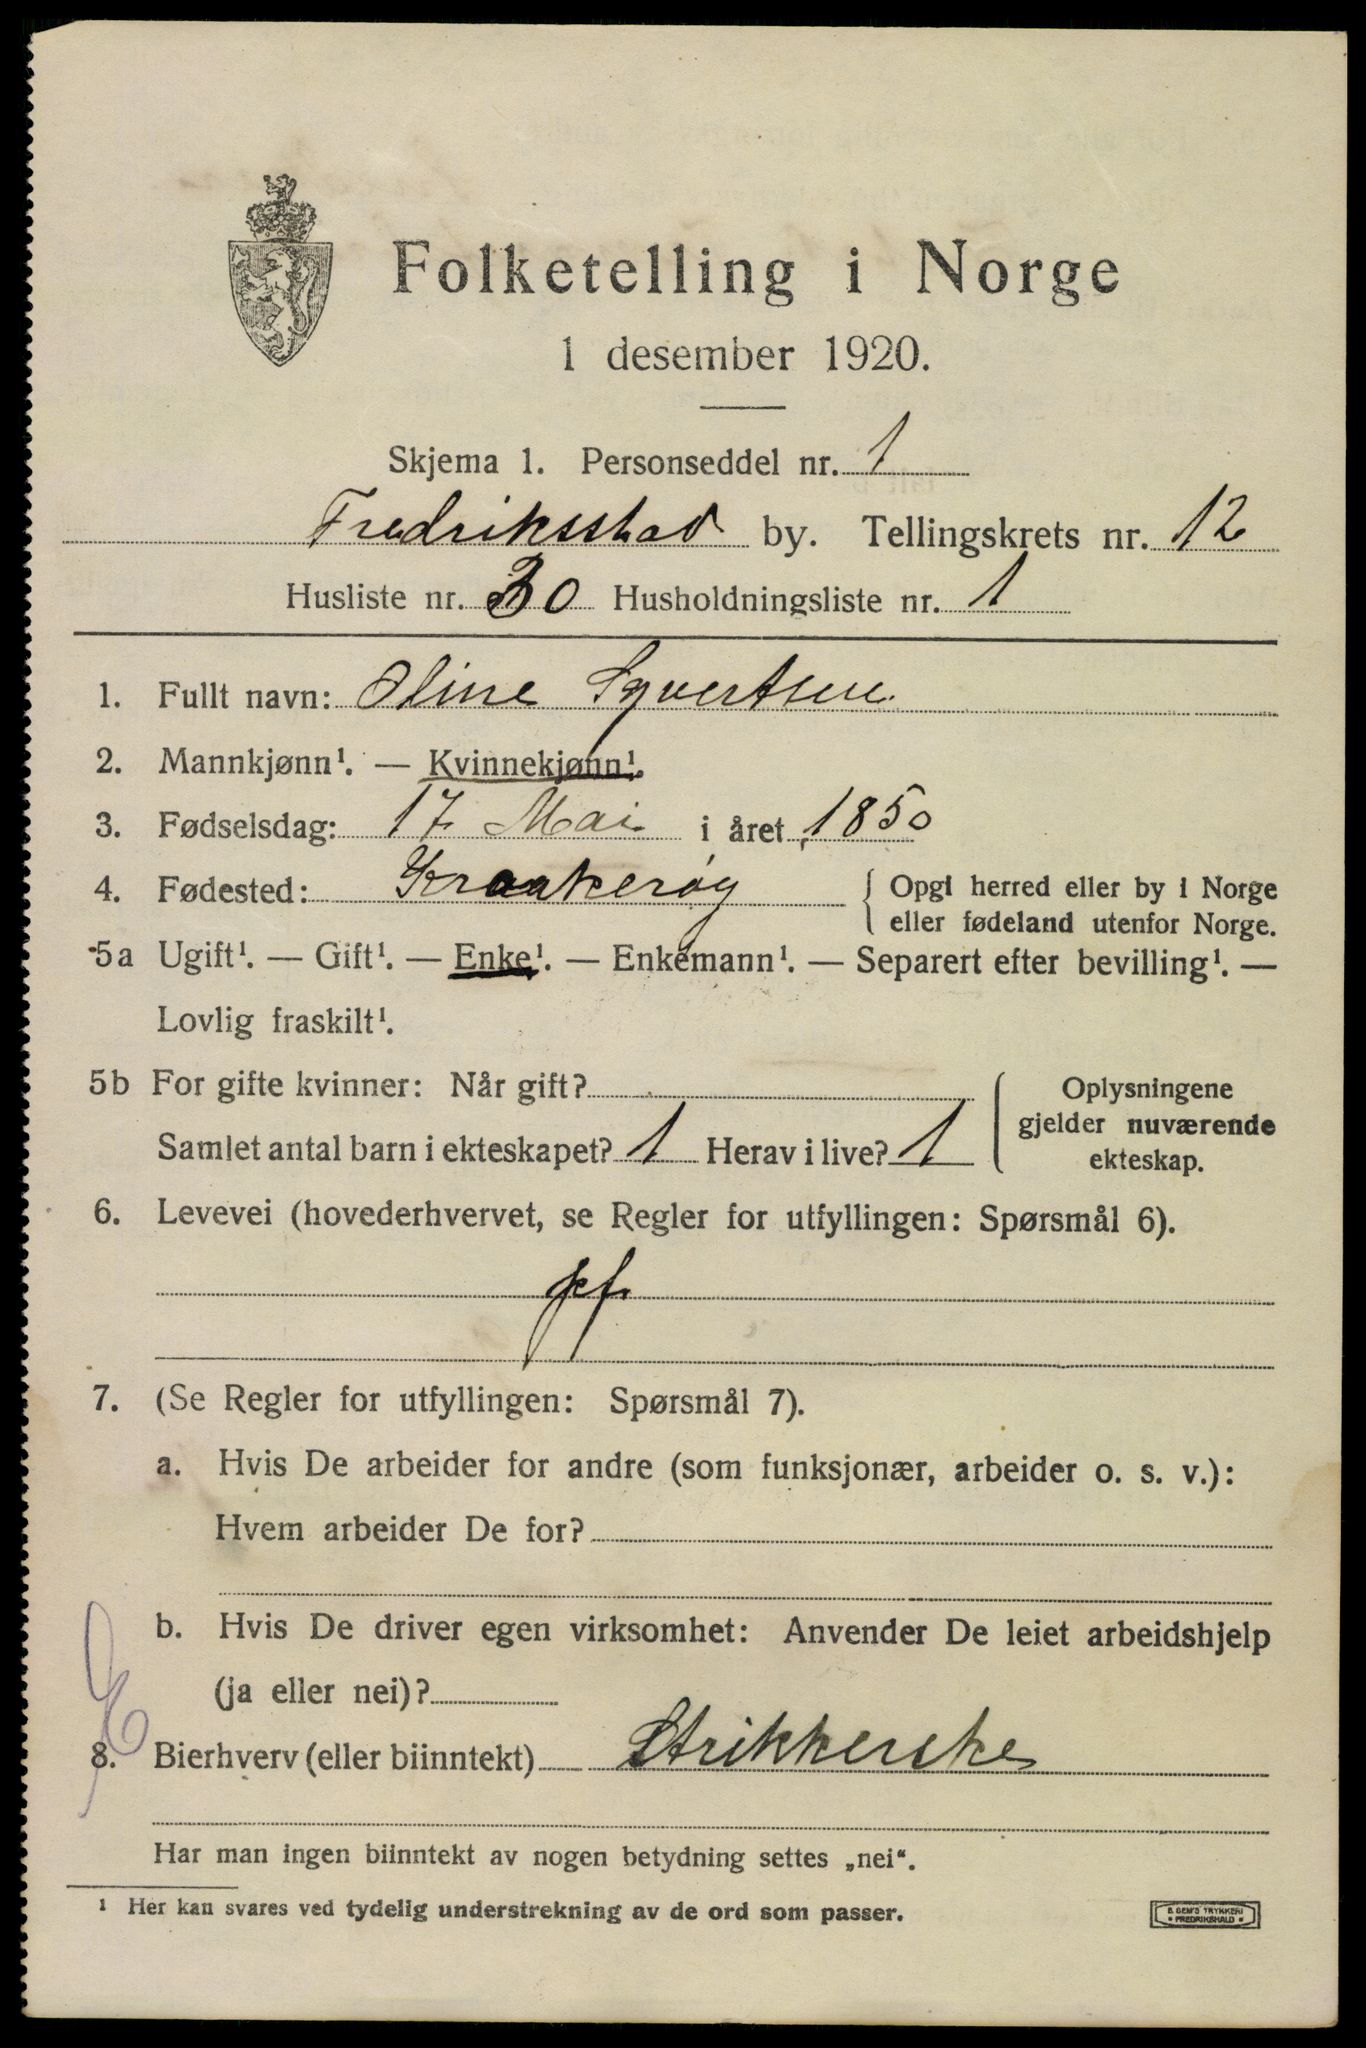 Folketelling i Norge
1 desember 1920.
Skjema 1. Personseddel nr. 1
Fredriksstad by. Tellingskrets nr. 12
Husliste nr. 30 Husholdningsliste nr. 1
1. Fullt navn: Oline Syvertsen
2. Mannkjønn¹. — Kvinnekjønn¹.
3. Fødselsdag: 17 Mai i året 1850
4. Fødested: Kraakerøy { Opgi herred eller by i Norge
eller fødeland utenfor Norge.
5a Ugift¹. — Gift¹. — Enke¹. — Enkemann¹. — Separert efter bevilling¹. —
Lovlig fraskilt¹.
5b For gifte kvinner: Når gift?
Samlet antal barn i ekteskapet? 1 Herav i live? 1
Oplysningene
gjelder nuværende
ekteskap.
6. Levevei (hovederhvervet, se Regler for utfyllingen: Spørsmål 6).
7. (Se Regler for utfyllingen: Spørsmål 7).
a. Hvis De arbeider for andre (som funksjonær, arbeider o. s. v.):
Hvem arbeider De for?
b. Hvis De driver egen virksomhet: Anvender De leiet arbeidshjelp
(ja eller nei)?
8. Bierhverv (eller biinntekt) Strikkerske
Har man ingen biinntekt av nogen betydning settes „nei“.
¹ Her kan svares ved tydelig understrekning av de ord som passer.
E SEM'S TRYKKERI
• FREDRIKSHALD •